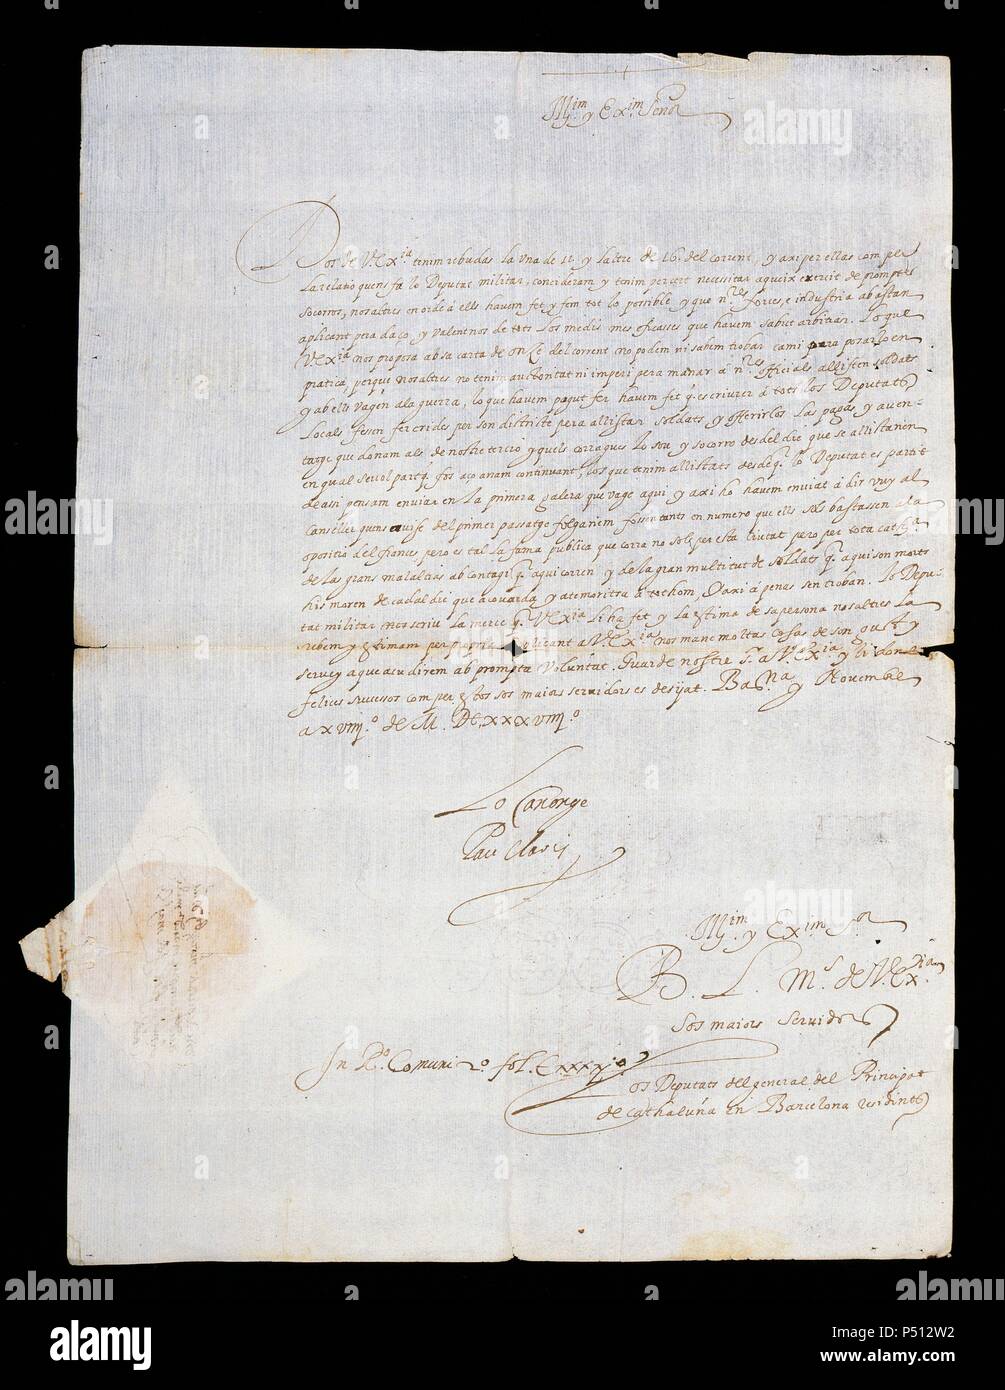 Ill^m. y Ex^im. Señor
Dos de V. Ex^ia tenim rebudas la una de 11. y laltre de 16. del corrent, y axi per ellas com per
la relatio quens fa lo Deputat militar, consideram y tenim per cert necessitar aqueix exercit de promptes
socorros, nosaltres en orde á ells havem fet y fem tot lo possible y que n^res forces, e industria abastan
aplicant pera daço, y valentnos de tots los medis mes eficasses que havem sabut arbitrar. Lo que
V Ex^ia nos proposa ab sa carta de onze del corrent no podem ni sabem trobar cami para posarlo en
pratica, perque nosaltres no tenim auctoritat ni imperi pera manar á n^res officials allisten soldats
y ab ells vagen á la guerra, lo que havem pogut fer havem fet q. es escriurer á tots los Deputats
Locals fessen fer crides per son districte pera allistar soldats, y offerirlos las pagas y aven-
tatge que donam als de nostre tercio y quels corregues lo sou y socorro desdel die que se allistaren
en qual sevol part q. fos aço anam continuant, los que tenim allistats desde q. lo Deputat es partit
de asi pensam enviar en la primera galera que vage aqui y axi ho havem enviat á dir vuy al
Canseller quens avise del primer passatge folgariem fossen tants en numero que ells sols bastassen a la
opositio del frances pero es tal la fama publica que corra no sols per esta ciutat pero per tota cath^a
de las grans malalties ab contagi q. aqui corren y de la gran multitut de soldats q. aqui son morts
hi s moren de cada l die que acovarda y atemoritza á tothom, y axi á penas sen troban. Lo Depu-
tat militar nos escriu la merce q. V Ex^ia li ha fet y la estima de sa persona nosaltres la
rebem y estimam per propria suplicant a V Ex^ia nos mane moltas cosas de son gust y
servey a que acudirem ab prompta voluntat. Guarde nostre S^r a V^a Ex^ia y li done
felices successos com per estos sos maiors servidors es desijat. Bar^na y Novembre
a xviiij.^o de M. DC,xxxviiij.^o
Lo Canonge
Pau Claris
Ill^m. y Ex^im S^or
B. L. M^s. de V. Ex^ia.
Sos maiors servidors
In R^o. Comuni 2^o fol. Cxxxxj^o.
Los Deputats del general del Principat
de cathaluña en Barcelona residints
alamy
P512W2
www.alamy.com